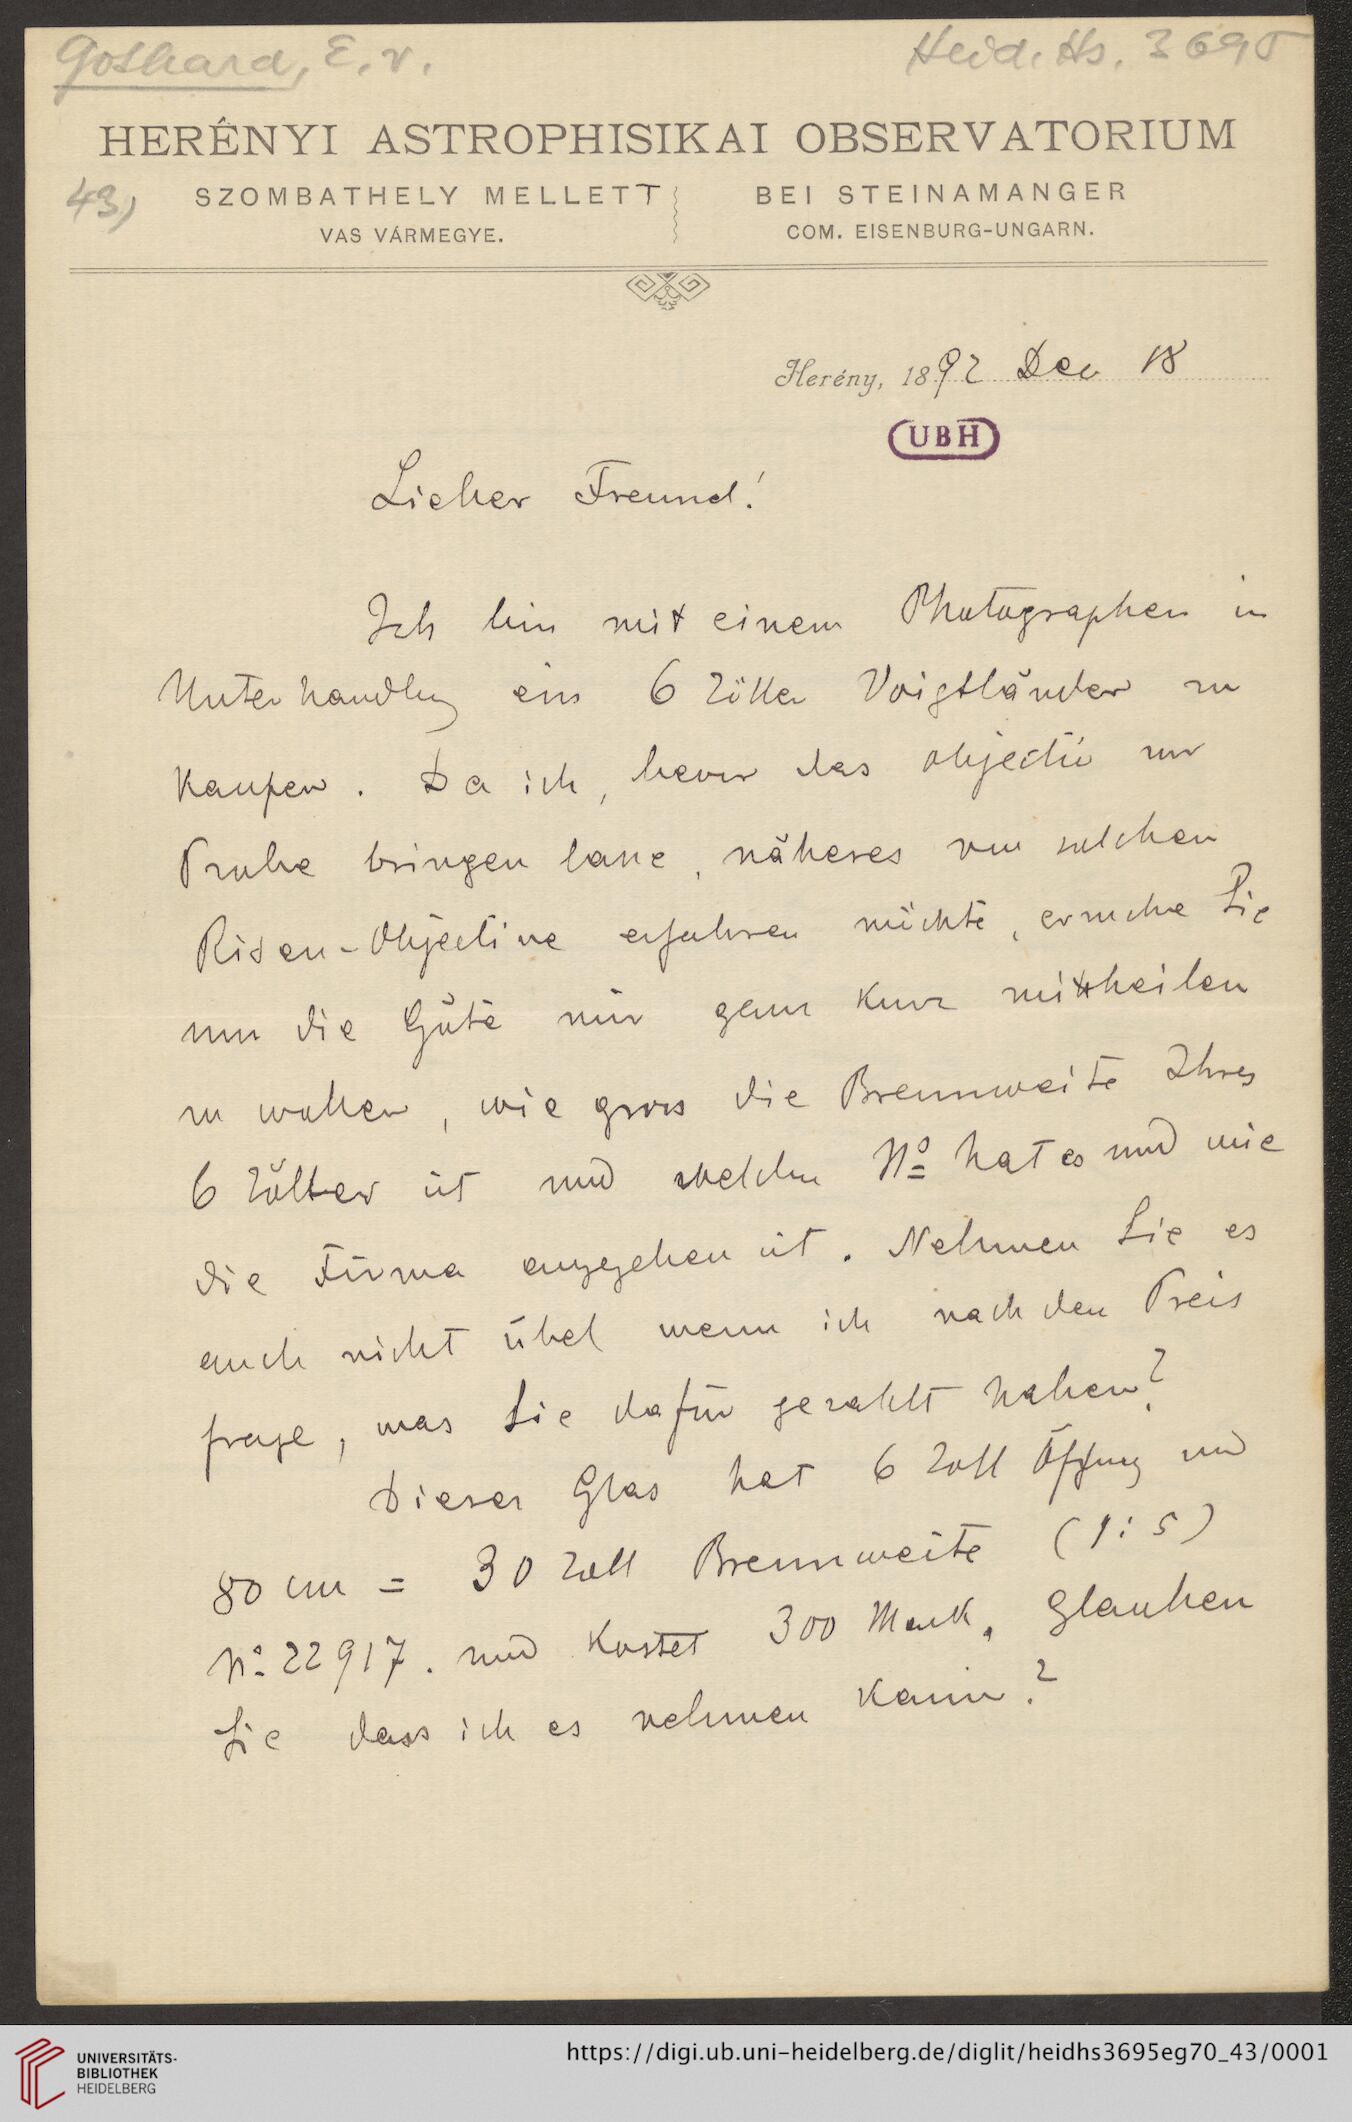 Gothard, E. v.
Heid. Hs. 3695
HERÉNYI ASTROPHISIKAI OBSERVATORIUM
43)
SZOMBATHELY MELLETT
VAS VÁRMEGYE.
BEI STEINAMANGER
COM. EISENBURG-UNGARN.
Herény, 1892 Dec 18
UBH
Lieber Freund!
Ich bin mit einem Photographen in
Unterhandlung ein 6 Zöller Voigtländer zu
kaufen. Da ich, bevor das Objectiv zur
Probe bringen lasse, näheres von solchen
Risen-Objective erfahren möchte, ersuche Sie
um die Güte mir ganz kurz mittheilen
zu wollen, wie gross die Brennweite Ihres
6 Zöller ist und welchen No hat es und wie
die Firma angegeben ist. Nehmen Sie es
auch nicht übel wenn ich nach den Preis
frage, was Sie dafür gezahlt haben?
Dieser Glas hat 6 Zoll Öffnung und
80 cm = 30 Zoll Brennweite (1:5)
No 22917. und kostet 300 Mark. Glauben
Sie dass ich es nehmen kann?
UNIVERSITÄTS-
BIBLIOTHEK
HEIDELBERG
https://digi.ub.uni-heidelberg.de/diglit/heidhs3695eg70_43/0001